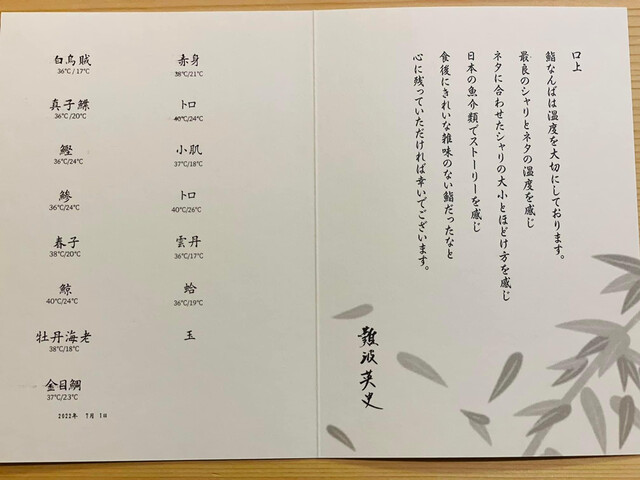 口上
鮨なんばは温度を大切にしております。
最良のシャリとネタの温度を感じ
ネタに合わせたシャリの大小とほどけ方を感じ
日本の魚介類でストーリーを感じ
食後にきれいな雑味のない鮨だったなと
心に残っていただければ幸いでございます。
難波英史
白烏賊
36℃/17℃
真子鰈
36℃/20℃
鰹
36℃/24℃
鯵
36℃/24℃
春子
38℃/20℃
鯨
40℃/24℃
牡丹海老
38℃/18℃
金目鯛
37℃/23℃
赤身
38℃/21℃
トロ
40℃/24℃
小肌
37℃/18℃
トロ
40℃/26℃
雲丹
36℃/17℃
蛤
36℃/19℃
玉
2022年 7月 1日